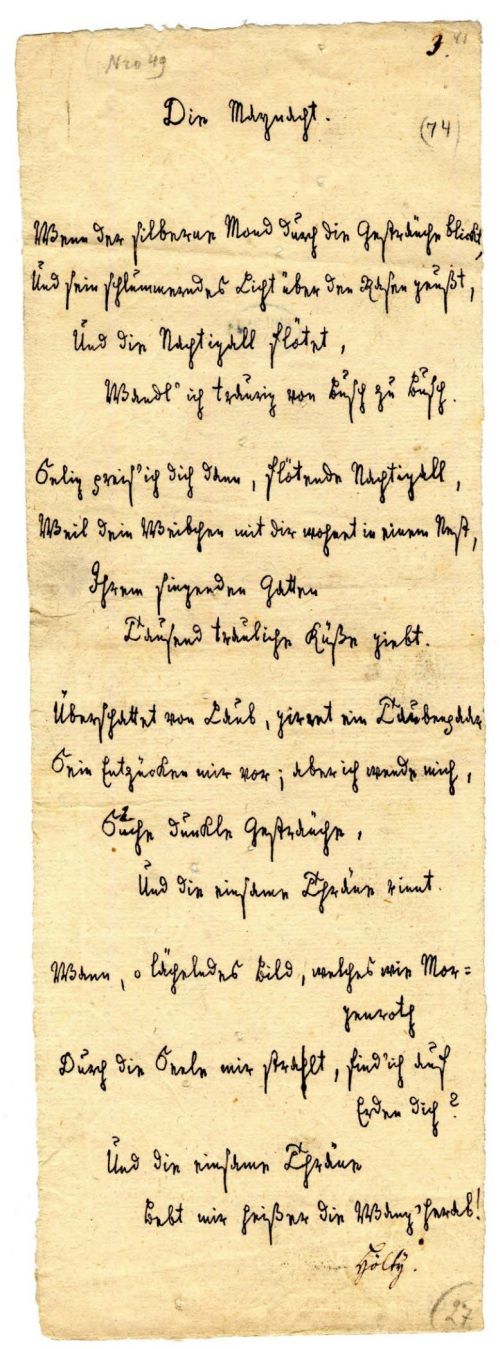 Nro 49
3.
41
Die Maynacht.
(74)
Wenn der silberne Mond durch die Gesträuche blickt,
Und sein schlummerndes Licht über den Rasen geußt,
Und die Nachtigall flötet,
Wandl' ich traurig von Busch zu Busch.
Selig preis' ich dich dann, flötende Nachtigall,
Weil dein Weibchen mit dir wohnet in einem Nest,
Ihrem singenden Gatten
Tausend trauliche Küße giebt.
Überschattet von Laub, girret ein Taubenpaar
Sein Entzücken mir vor; aber ich wende mich,
Suche dunkle Gesträuche,
Und die einsame Thräne rinnt.
Wann, o lächelndes Bild, welches wie Mor=
genroth
Durch die Seele mir strahlt, find' ich auf
Erden dich?
Und die einsame Thräne
Bebt mir heißer die Wang' herab!
Hölty.
27